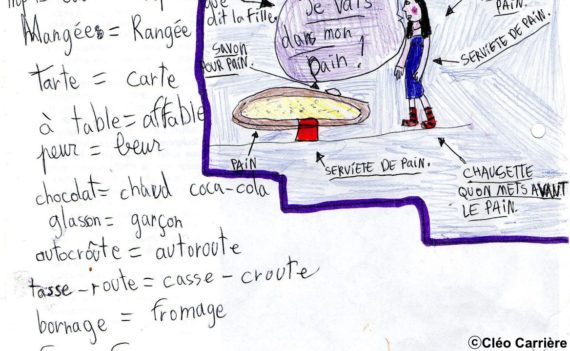 Mangées = Rangée
tarte = carte
à table = affable
peur = beur
chocolat = chaud coca-cola
glasson = garçon
autocroûte = autoroute
tasse-route = casse-croute
bornage = fromage
dit la fille
Je vais
dans mon
pain !
SAVON
POUR PAIN.
PAIN.
SERVIETE DE PAIN.
PAIN
SERVIETE DE PAIN.
CHAUSETTE
QU'ON METS AVANT
LE PAIN.
©Cléo Carrière